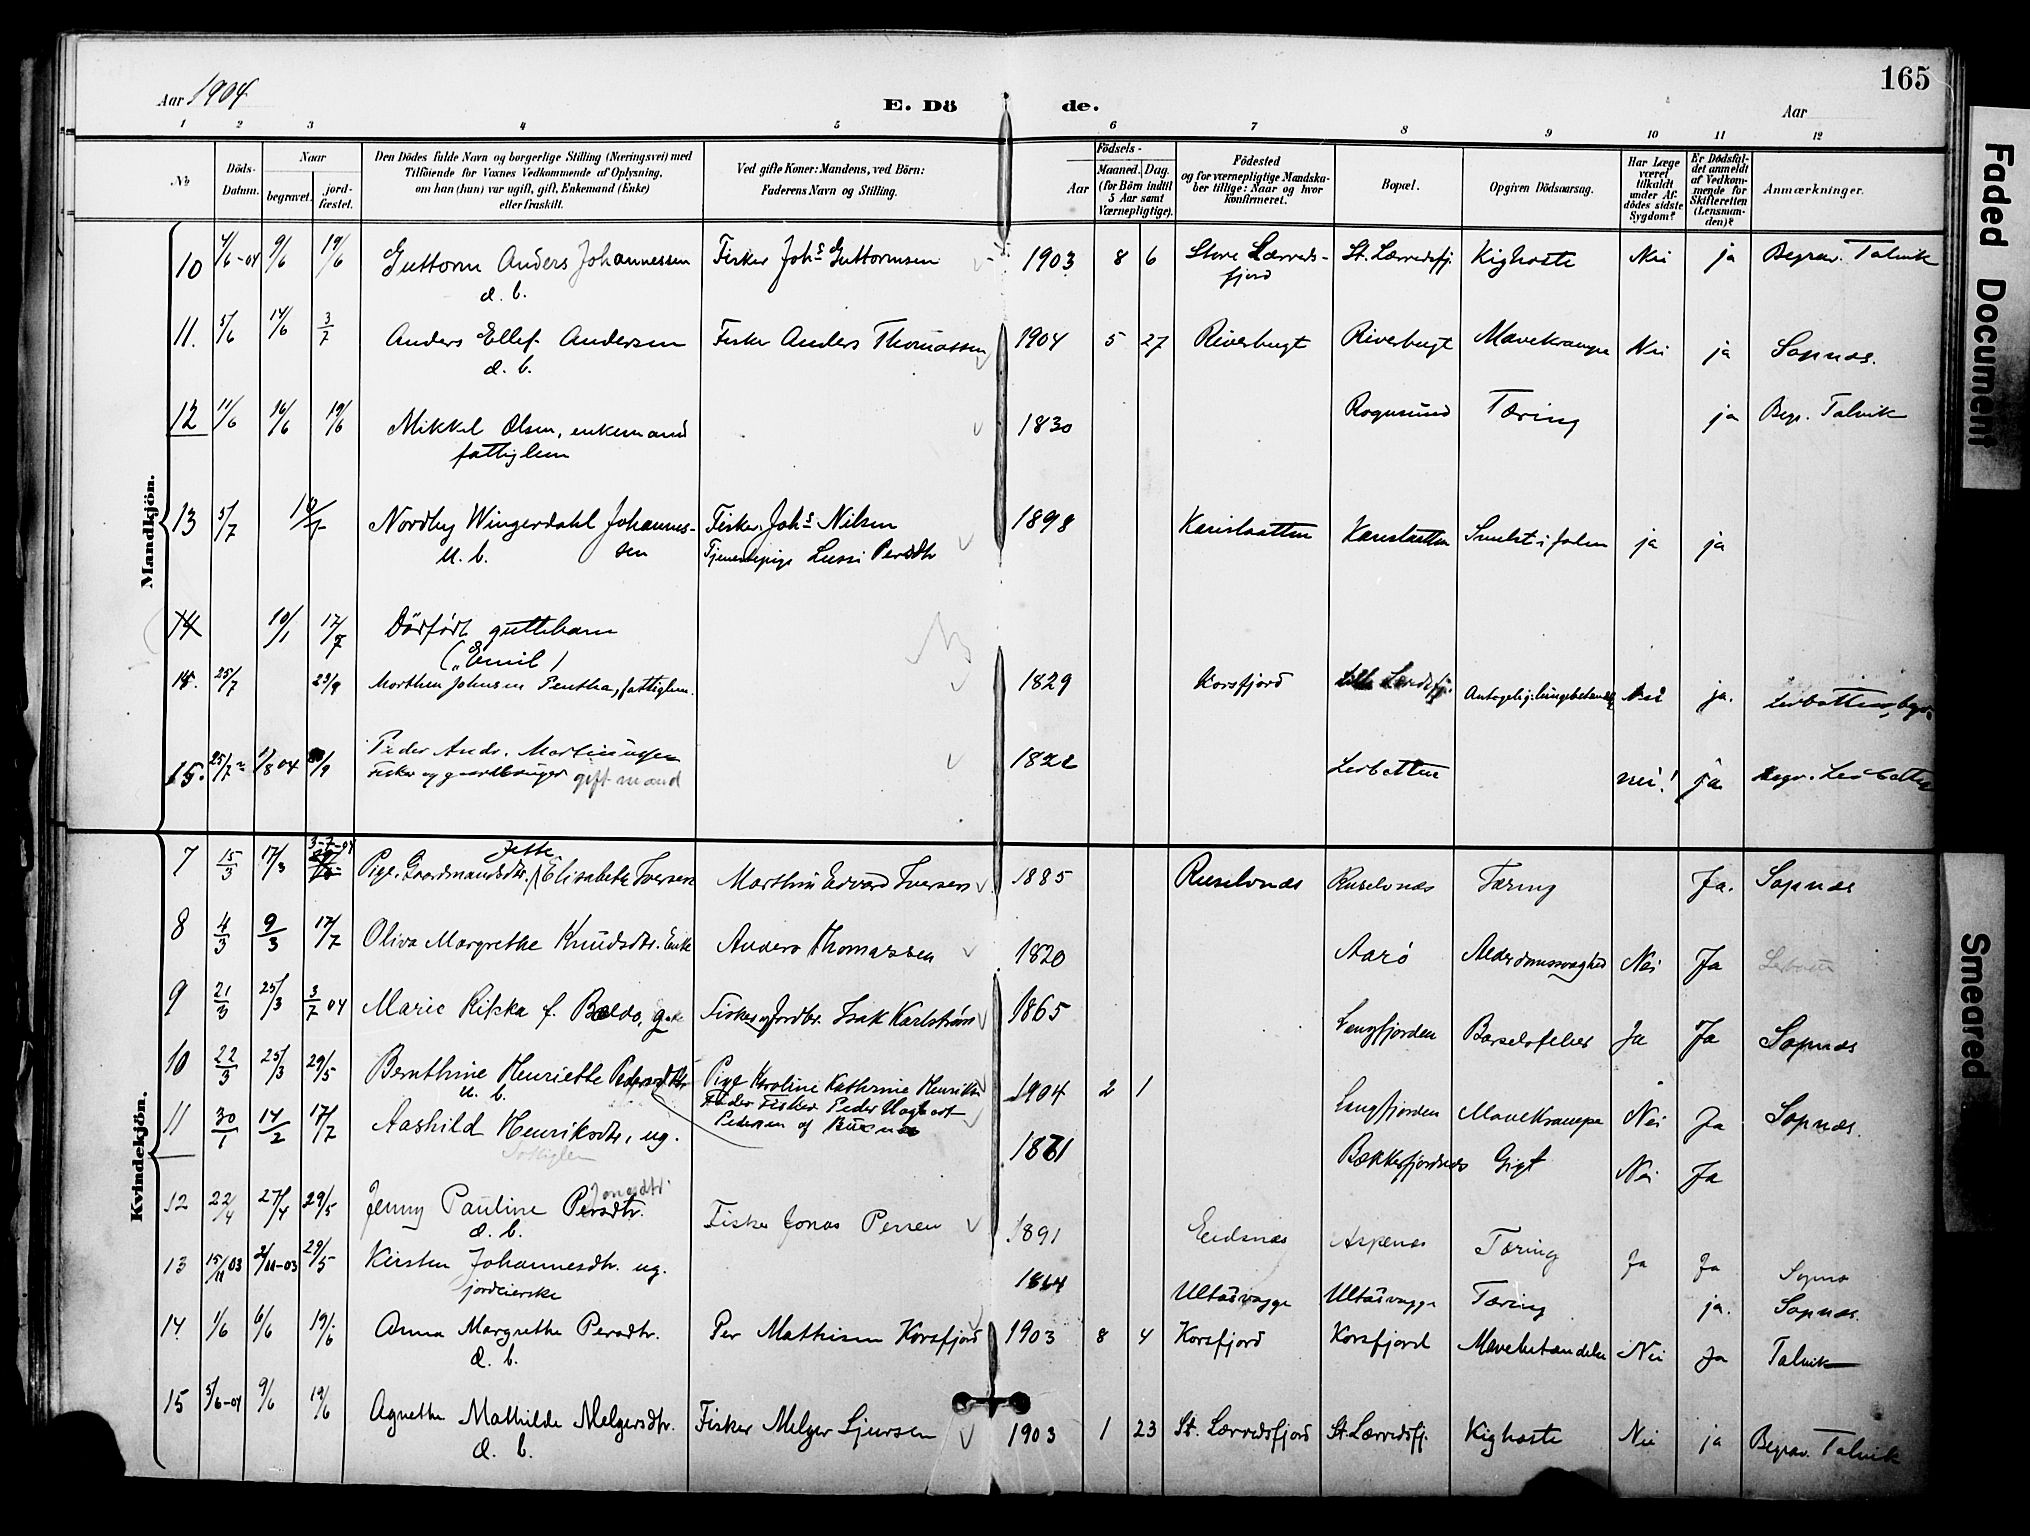 165
Aar 1904
E. Dö de.
Aar
1 2 3 4 5 6 7 8 9 10 11 12
No
Döds-Datum.
Naar
begravet.
jord-fæstet.
Den Dödes fulde Navn og borgerlige Stilling (Næringsvei) med
Tilföiende for Voxnes Vedkommende af Oplysning,
om han (hun) var ugift, gift, Enkemand (Enke)
eller fraskilt.
Ved gifte Koner: Mandens, ved Börn:
Faderens Navn og Stilling.
Födsels-
Aar
Maaned. Dag.
(for Börn indtil
5 Aar samt
Værnepligtige).
Födested
og for værnepligtige Mandska-
ber tillige: Naar og hvor
konfirmeret.
Bopæl.
Opgiven Dödsaarsag.
Har Læge
været
tilkaldt
under Af-
dödes sidste
Sygdom?
Er Dödsfal-
det anmeldt
af Vedkom-
mende for
Skifteretten
(Lensman-
den)?
Anmærkninger.
Mandkjön.
10 4/6-04 9/6 19/6 Guttorm Anders Johannessen Fisker Johs Guttormsen 1903 8 6 Store Lærreds- St. Lærredsfj. Kighoste Nei ja Begrav. Talvik
d. b. fjord
11. 5/6 14/6 3/7 Anders Ellef Andersen Fisker Anders Thomassen 1904 5 27 Riverbugt Riverbugt Mavekrampe Nei ja Sopnæs.
d. b.
12 11/6 16/6 19/6 Mikkel Olsen, enkemand 1830 Rognsund Tæring ja Begr. Talvik
fattiglem
13 5/7 10/7 Nordby Wingerdahl Johannes- Fisker Johs Nilsen 1898 ja ja
u. b. sen Tjenestepige Lussi Persdtr
14 10/1 17/7 Dödfödt guttebarn
("Emil")
15. 25/7 23/9 Morthen Johnsen Pentha, fattiglem. 1829 Korsfjord Lille Lerredsfj. Antagelig lungebetændelse Nei ja. Leirbotten, begr.
15. 25/7 1/8 04 Peder Andr. Martinussen 1822 Leirbotten nei! ja Begr. Leirbotten
Fisker og gaardbruger gift mand
Kvindekjön.
Jette 3-7-04
7 15/3 17/3 Pige. Gaardmandsdtr. Elisabeth Iversen Morthin Edvard Iversen 1885 Ruselvnæs Ruselvnæs Tæring Ja. Sopnæs
8 4/3 9/3 17/7 Oliva Margrethe Knudsdtr. Enke Anders Thomassen 1820 Aarø Alderdomssvaghed Nei Ja
9 21/3 25/3 3/7 04 Marie Fisker og Jordbr. Isak Karlstrøm 1865 Langfjorden Barselsfeber Ja Ja Sopnæs
10 22/3 25/3 29/5 Bernthine Henriette Pedersdtr Pige Karoline Kathrine Henriksdtr 1904 2 1 Langfjorden Mavekrampe Nei Ja Sopnæs.
u. b. Fader Fisker Peder Hagbart
Pedersen af
11 30/1 14/2 17/7 Aashild Henriksdtr. ug. 1871 Bækkerfjordnæs Gigt Nei Ja
fattiglem
Jonasdtr.
12 22/4 27/4 29/5 Jenny Pauline Persdtr. Fisker Jonas Persen 1891 Eidsnæs Aspenæs Tæring Ja Ja Sopnæs
d. b.
13 15/11 03 2/11-03 29/5 Kirsten Johannesdtr. ug. 1864 Ultasvagge Ultasvagge Tæring ja. Sopnæs.
jordeierske
14. 1/6 6/6 19/6 Anna Margrethe Persdtr. Per Mathisen Korsfjord 1903 8 4 Korsfjord Korsfjord Mavebetændelse Nei Ja Talvik
d. b.
15 5/6-04 9/6 19/6 Agnethe Mathilde Melgersdtr. Fisker Melger Sjursen 1903 1 23 St. Lærredsfjord St. Lærredsfj. Kighoste Nei ja Begrav. Talvik
d. b.
Faded Document
Smeared